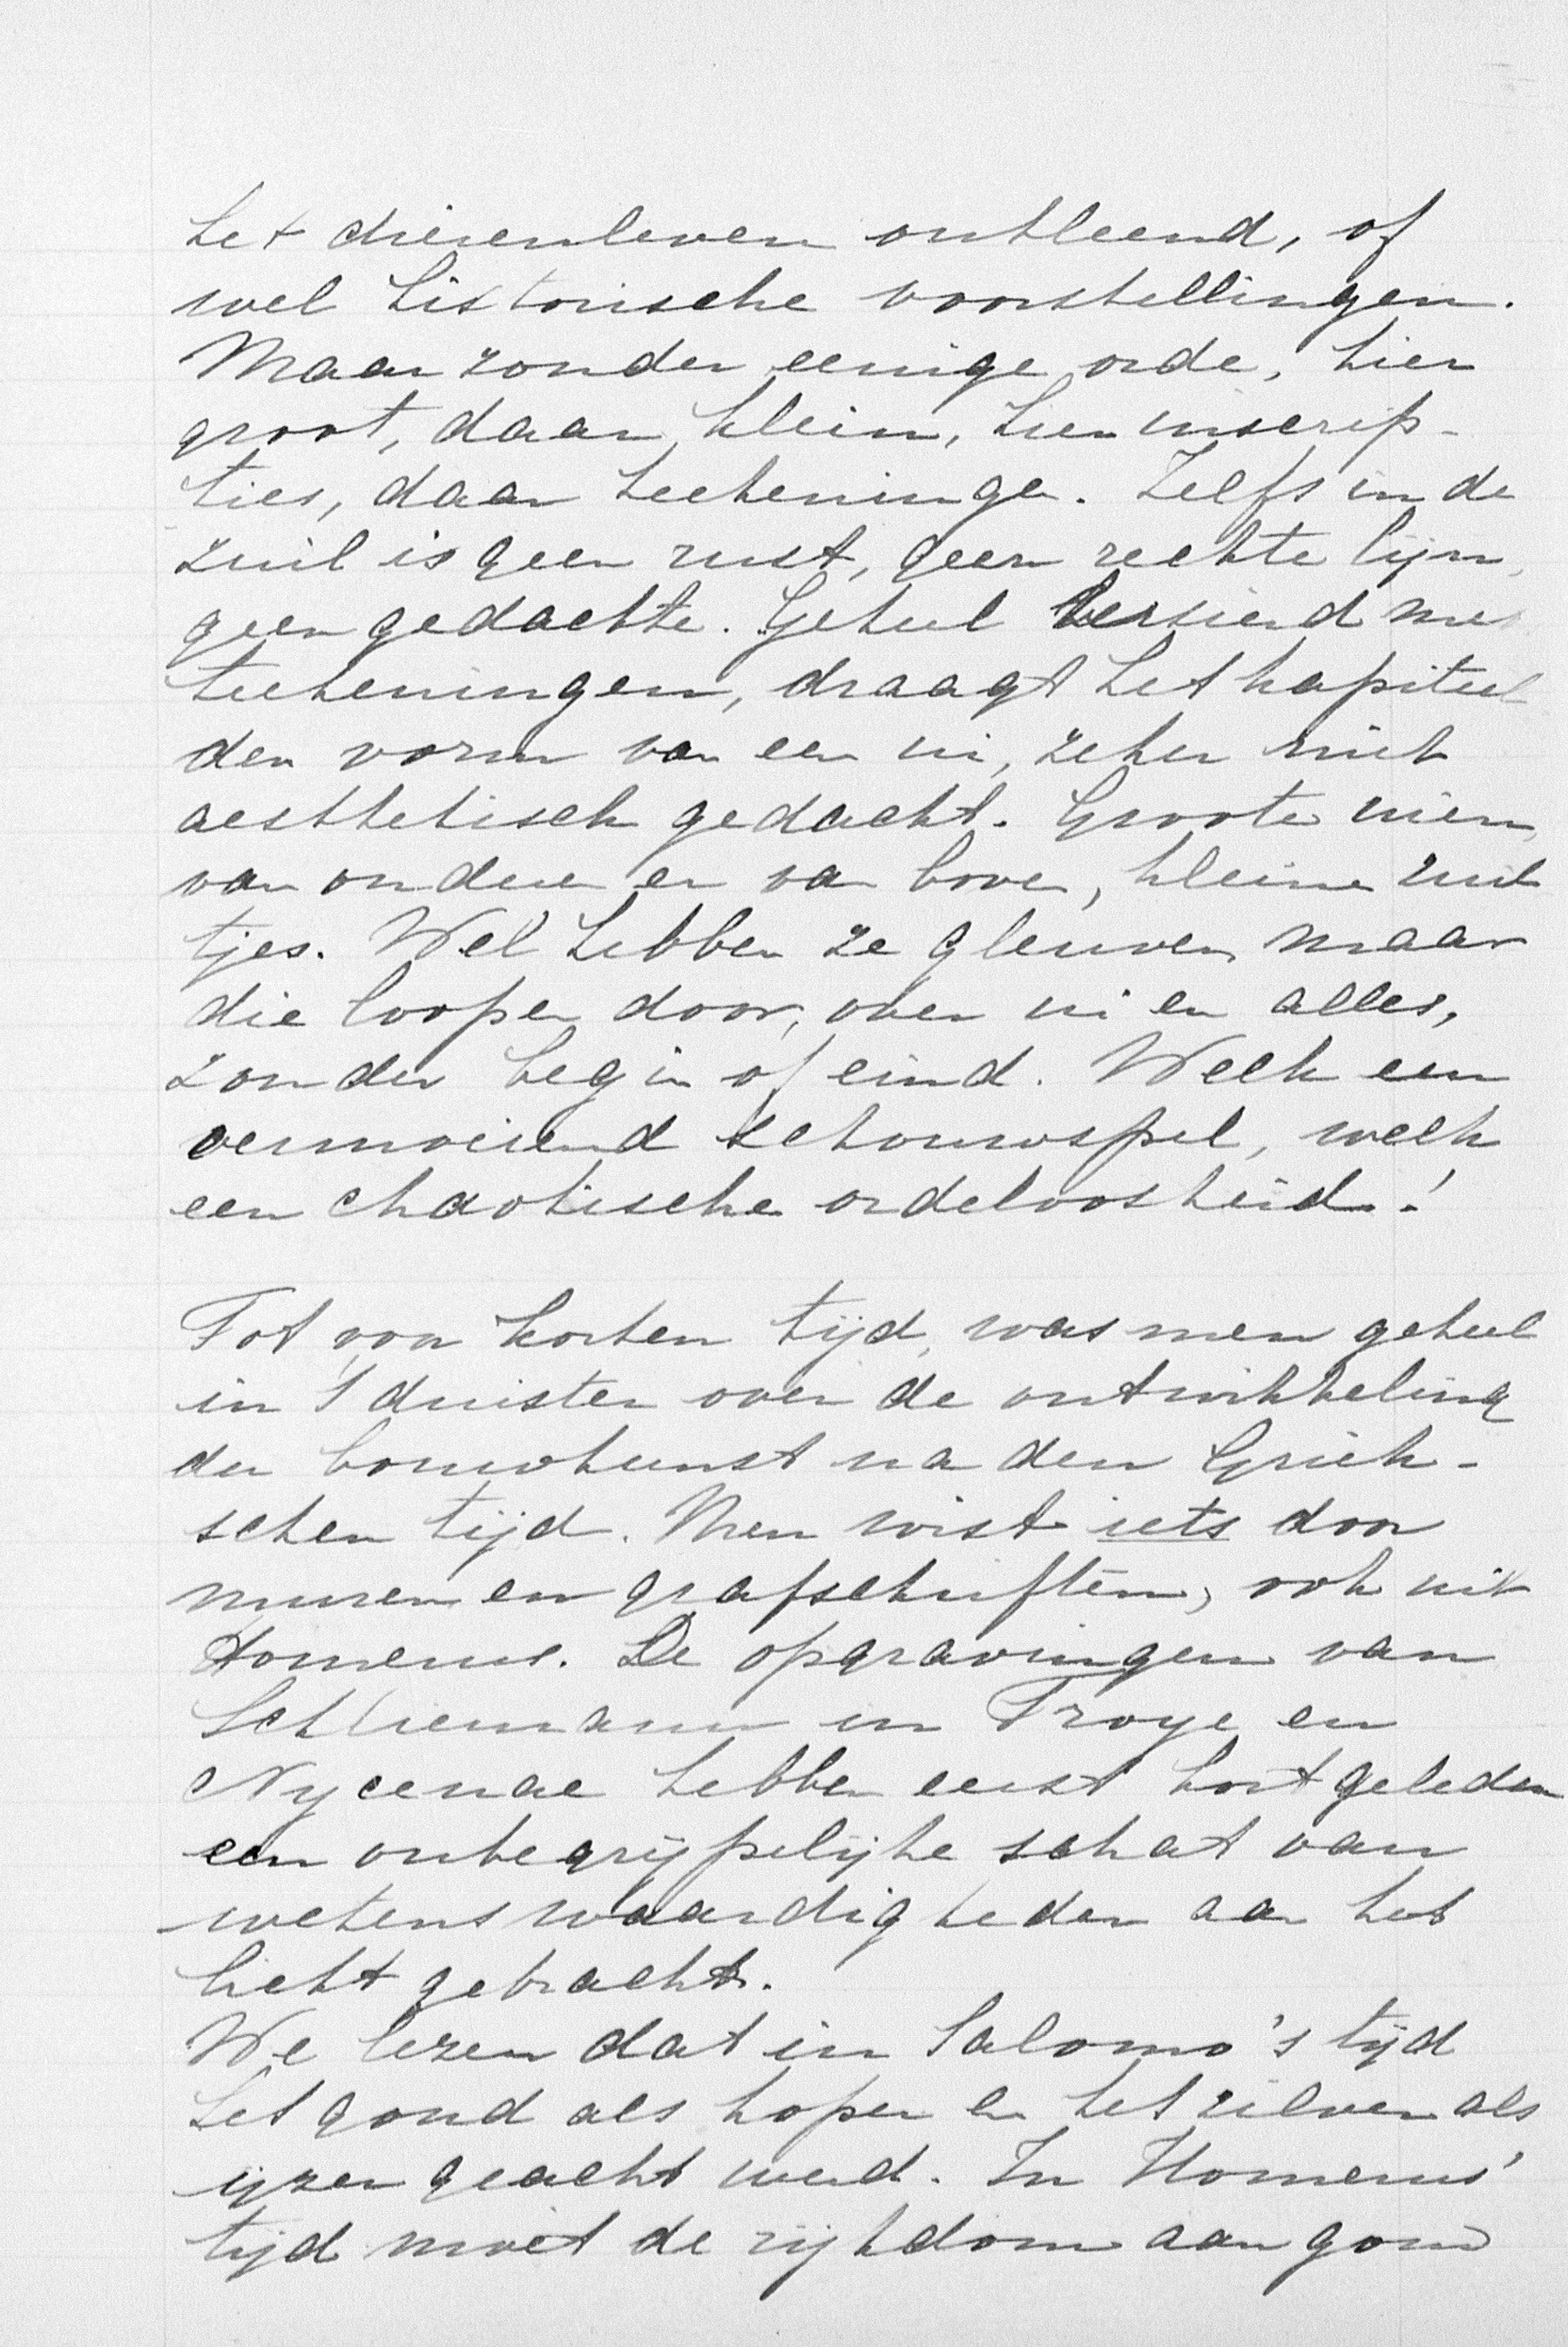 het dierenleven ontleend, of
wel historische voorstellingen.
Maar zonder eenige orde, hier
groot, daar klein, hier inscrip-
ties, daar teekeninge. Zelfs in de
zuil is geen rust, geen rechte lijn,
geen gedachte. Geheel versierd me
teekeningen, draagt het kapiteel
den vorm van een ui, zeker niet
aesthetisch gedacht. Groote uien,
van onderen en van boven, kleine zuil
tjes. Wel hebben ze gleuven, maar
die loopen door, over ui en alles,
zonder begin of eind. Welk een
vermoeiend schouwspel, welk
een chaotische ordeloosheid!
Tot voor korten tijd, was men geheel
in 't duister over de ontwikkeling
der bouwkunst na den Griek-
schen tijd. Men wist iets door
muren en grafschriften, ook uit
Homerus. De opgravingen van
Schliemann in Troye en
Mycenae hebben eerst kort geleden
een onbegrijpelijke schat van
wetenswaardigheden aan het
licht gebracht.
We lezen dat in Salomo's tijd
het goud als koper en het zilver als
ijzer geacht werd. In Homerus'
tijd moet de rijkdom aan goud